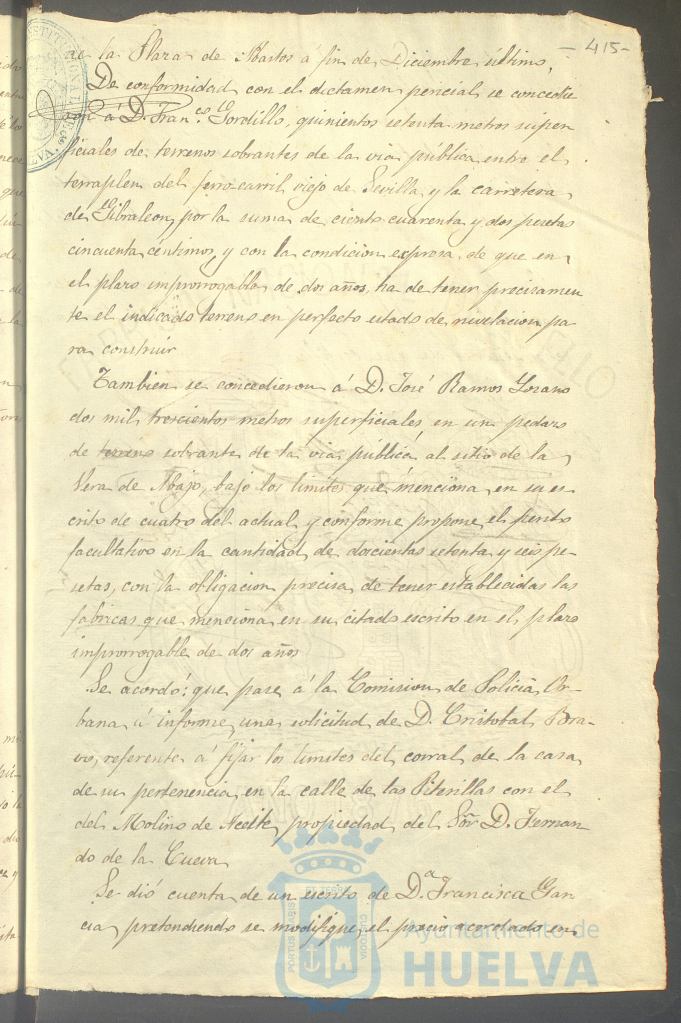 - 415 -
de la Plaza de Abastos á fin de Diciembre último,
De conformidad con el dictamen pericial se concedie
ron á D. Fran.co Gordillo, quinientos setenta metros super
ficiales de terrenos sobrantes de la via pública entre el
terraplen del ferro-carril viejo de Sevilla y la carretera
de Gibraleon, por la suma de ciento cuarenta y dos pesetas
cincuenta céntimos, y con la condicion expresa, de que en
el plazo improrrogable de dos años, ha de tener precisamen
te el indicado terreno en perfecto estado de nivelacion pa
ra construir
Tambien se concedieron á D. José Ramos Lozano
dos mil trescientos metros superficiales, en un pedazo
de terreno sobrante de la via pública al sitio de la
Vera de Abajo, bajo los limites que menciona en su es
crito de cuatro del actual y conforme propone el perito
facultativo en la cantidad de doscientas setenta y seis pe
setas, con la obligacion precisa de tener establecidas las
fabricas que menciona en su citado escrito en el plazo
improrrogable de dos años
Se acordó: que pase á la Comision de Policia Ur
bana á informe, una solicitud de D. Cristobal Bra-
vo, referente á fijar los limites del corral de la casa
de su pertenencia en la calle de las Piterillas con el
del Molino de Aceite, propiedad del Sõr D. Fernan
do de la Cueva
Se dió cuenta de un escrito de D.a Francisca Gar
cia pretendiendo se modifique el precio acordado en
Ayuntamiento de
HUELVA
PORTUS MARIS
ET TERRE
CUSTODIA